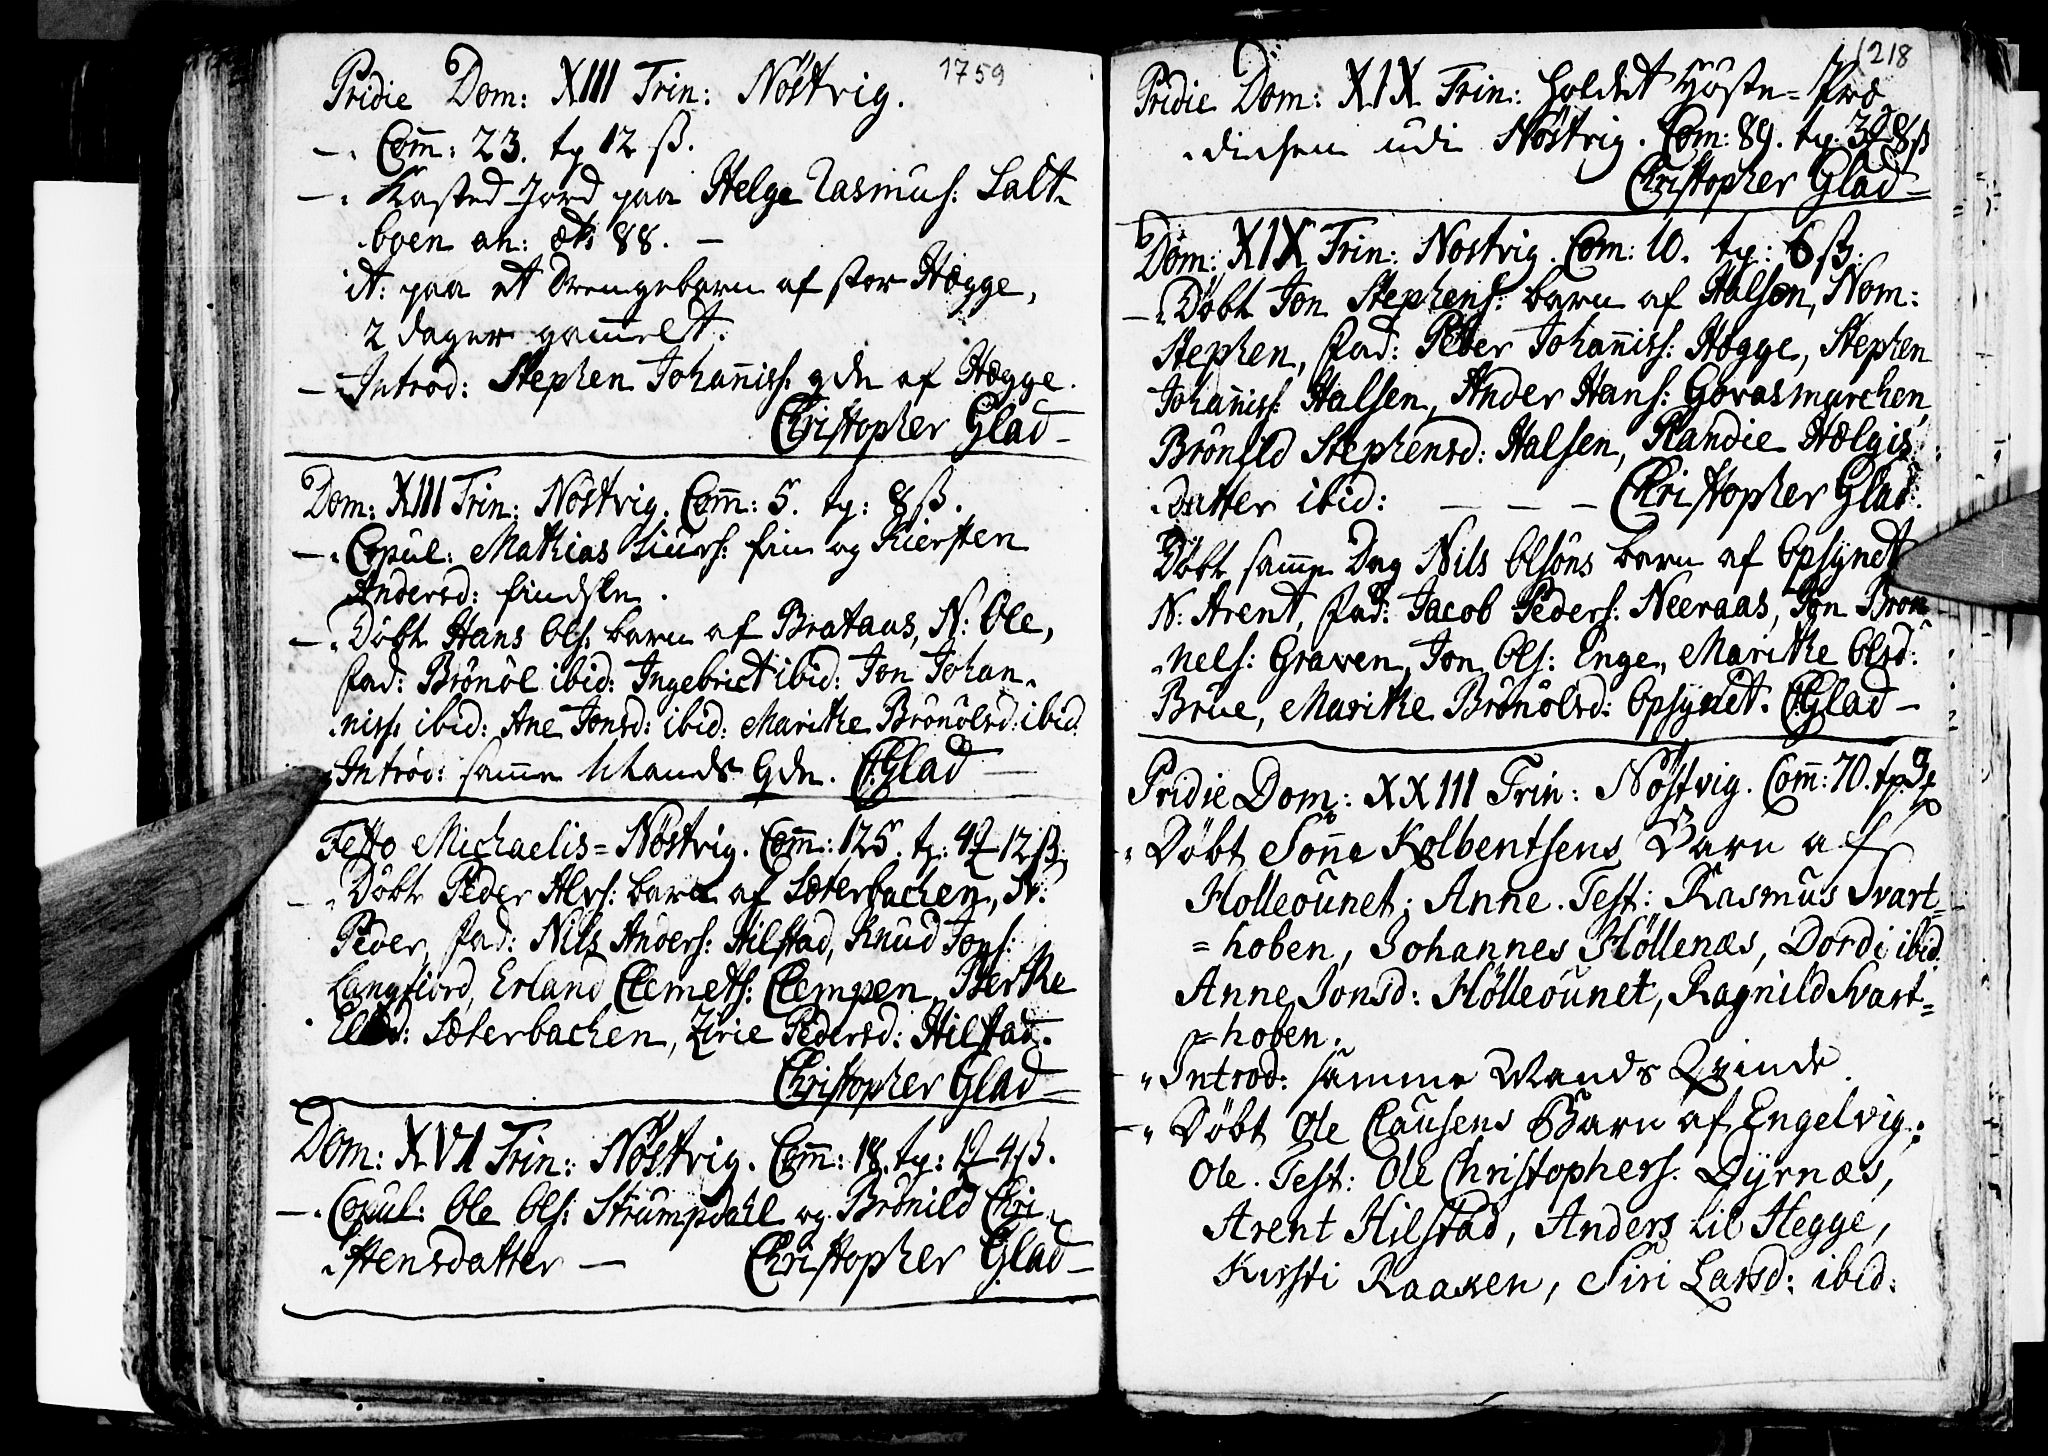 1759
Pridie Dom: XIII Trin: Nöstvig.
Com̄: 23. tp 12 ß.
Kasted Jord paa Helge Rasmus: Salt-
boen an: æt: 88. –
it: paa et Drengebarn af stor Hægge,
2 dager gam̄elt.
Introd: Stephen Johan̄iss: qdn af Hægge.
Christopher Glad
Dom: XIII Trin: Nöstvig. Com̄: 5. tp: 8 ß.
Copul: Mathias Siurs: fin og Kiersten
Andersd: findsln.
Döbt Hans Ols: barn af Brataas, N: Ole,
fad: Brönöl ibid: Ingebrict ibid: Jon Johan-
niss: ibid: Ane Jonsd: ibid: Marithe Brönölsd: ibid:
Introd: sam̄e Mands Qdn. C: Glad
Festo Michaelis = Nöstvig. Com̄: 125. tp: 4 12 ß.
Döbt Peder Alvs: barn af Sæterbachen, N:
Peder, fad: Nils Anders: Hilstad, Knud Jons:
Langfiord, Erland Clemets: Clempen, Berthe
Sæterbachen, Zirie Pedersd: Hilstad.
Christopher Glad
Dom: XVI Trin: Nöstvig. Com̄: 18. tp: 1 4 ß.
Copul: Ole Ols: Strumpdahl og Brönild Chri-
stensdatter – Christopher Glad
218
Pridie Dom: XIX Trin: holdet Höste-Præ-
dichen udi Nöstvig. Com: 89. tp: 3 8 ß
Christopher Glad
Dom: XIX Trin: Nöstvig. Com: 10. tp: 6 ß:
Döbt Jon Stephens: barn af Halsen, Nom:
Stephen, fad: Peter Johan̄iss: Hægge, Stephen
Johan̄iss: Halsen, Ander Hans: Gorasmarchen,
Brönild Stephensd: Halsen, Randie Hælgis
datter ibid: – – – Christopher Glad.
Döbt sam̄e Dag Nils Olsöns barn af Opsyndt
N: Arent, fad: Jacob Peders: Neeraas, Jon Brön-
nels: Graven, Jon Ols: Enge, Marithe Olsd:
Brue, Marithe Brönölsd: Opsyndt. C: Glad –
Pridie Dom: XXIII Trin: Nöstvig. Com̄: 70. tp. 3
Döbt Sön̄e Kolbentsens Barn af
Holleöunet; Anne. Test: Rasmus Svart-
=hoben, Johannes Höllenæs, Dordi ibid.
Anne Jonsd: Hölleöunet, Ragnild Svart=
=hoben.
Introd: samme Mands Qvinde.
Döbt Ole Clausens Barn af Engelvig;
Ole. Test: Ole Christophers: Dyrnæs,
Arent Hilstad, Anders Lil Hegge,
Kirsti Raaken, Siri Larsd: ibid: